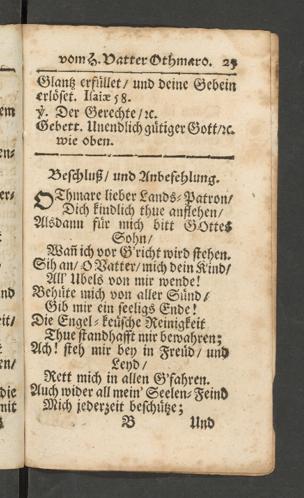 vom H. Vatter Othmaro. 25
Glantz erfüllet / und deine Gebein
erlöset. Isaiæ 58.
℣. Der Gerechte / ꝛc.
Gebett. Unendlich gütiger Gott / ꝛc.
wie oben.
Beschluß / und Anbefehlung.
OThmare lieber Lands-Patron /
Dich kindlich thue anflehen /
Alsdann für mich bitt GOttes
Sohn /
Wañ ich vor G'richt wird stehen.
Sih an / O Vatter / mich dein Kind /
All' Ubels von mir wende!
Behüte mich von aller Sünd /
Gib mir ein seeligs Ende!
Die Engel-keusche Reinigkeit
Thue standhafft mir bewahren;
Ach! steh mir bey in Freüd / und
Leyd /
Rett mich in allen G'fahren.
Auch wider all mein' Seelen-Feind
Mich jederzeit beschütze;
B Und